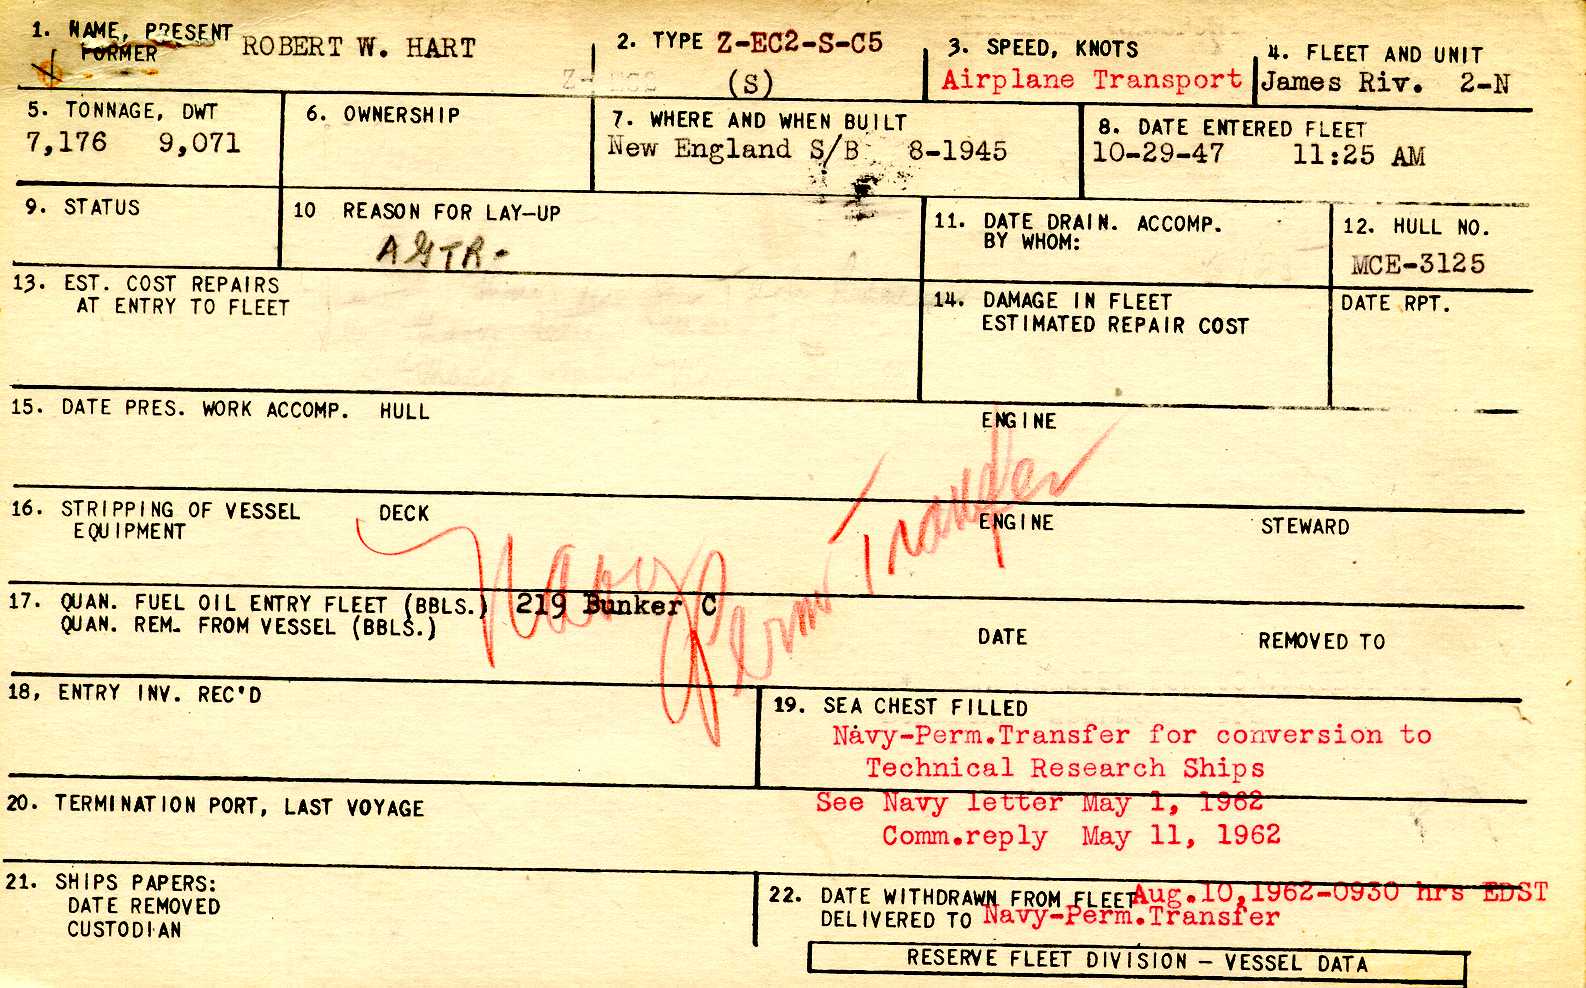 1. NAME, PRESENT
FORMER
ROBERT W. HART
2. TYPE Z-EC2-S-C5
(S)
3. SPEED, KNOTS
Airplane Transport
4. FLEET AND UNIT
James Riv. 2-N
5. TONNAGE, DWT
7,176 9,071
6. OWNERSHIP
7. WHERE AND WHEN BUILT
New England S/B 8-1945
8. DATE ENTERED FLEET
10-29-47 11:25 AM
9. STATUS
10 REASON FOR LAY-UP
AGTR-
11. DATE DRAIN. ACCOMP.
BY WHOM:
12. HULL NO.
MCE-3125
13. EST. COST REPAIRS
AT ENTRY TO FLEET
14. DAMAGE IN FLEET
ESTIMATED REPAIR COST
DATE RPT.
15. DATE PRES. WORK ACCOMP. HULL
ENGINE
16. STRIPPING OF VESSEL
EQUIPMENT
DECK
ENGINE
STEWARD
Navy
Perm Transfer
17. QUAN. FUEL OIL ENTRY FLEET (BBLS.) 219 Bunker C
QUAN. REM. FROM VESSEL (BBLS.)
DATE
REMOVED TO
18, ENTRY INV. REC'D
19. SEA CHEST FILLED
Navy-Perm.Transfer for conversion to
Technical Research Ships
See Navy letter May 1, 1962
Comm.reply May 11, 1962
20. TERMINATION PORT, LAST VOYAGE
21. SHIPS PAPERS:
DATE REMOVED
CUSTODIAN
22. DATE WITHDRAWN FROM FLEET Aug.10,1962-0930 hrs EDST
DELIVERED TO Navy-Perm.Transfer
RESERVE FLEET DIVISION – VESSEL DATA